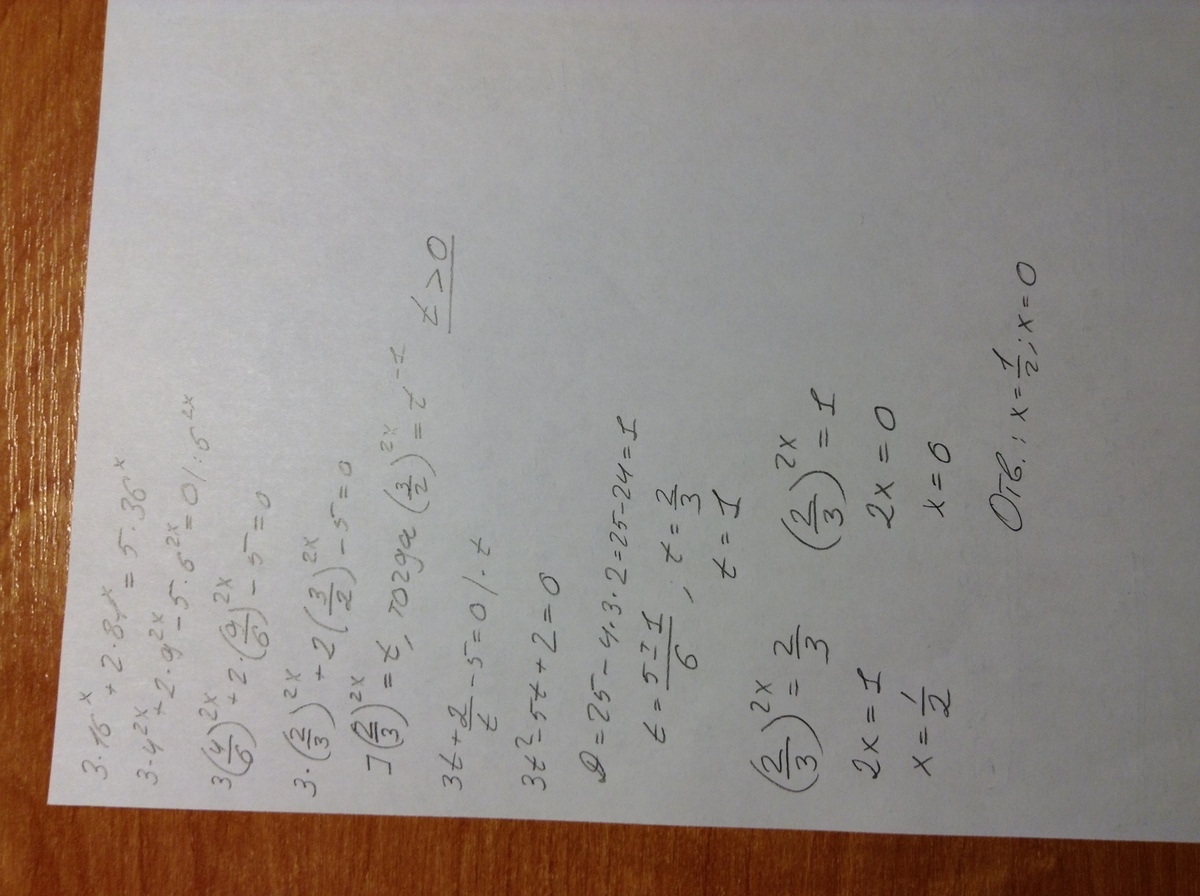 3·16^x + 2·81^x = 5·36^x
3·4^{2x} + 2·9^{2x} - 5·6^{2x} = 0 /: 6^{2x}
3(4/6)^{2x} + 2·(9/6)^{2x} - 5 = 0
3·(2/3)^{2x} + 2(3/2)^{2x} - 5 = 0
](2/3)^{2x} = t, тогда (3/2)^{2x} = t^{-1}   t > 0
3t + 2/t - 5 = 0 /·t
3t² - 5t + 2 = 0
D = 25 - 4·3·2 = 25 - 24 = 1
t = (5 ∓ 1)/6 , t = 2/3
t = 1
(2/3)^{2x} = 2/3   (2/3)^{2x} = 1
2x = 1   2x = 0
x = 1/2   x = 0
Отв.: x = 1/2; x = 0